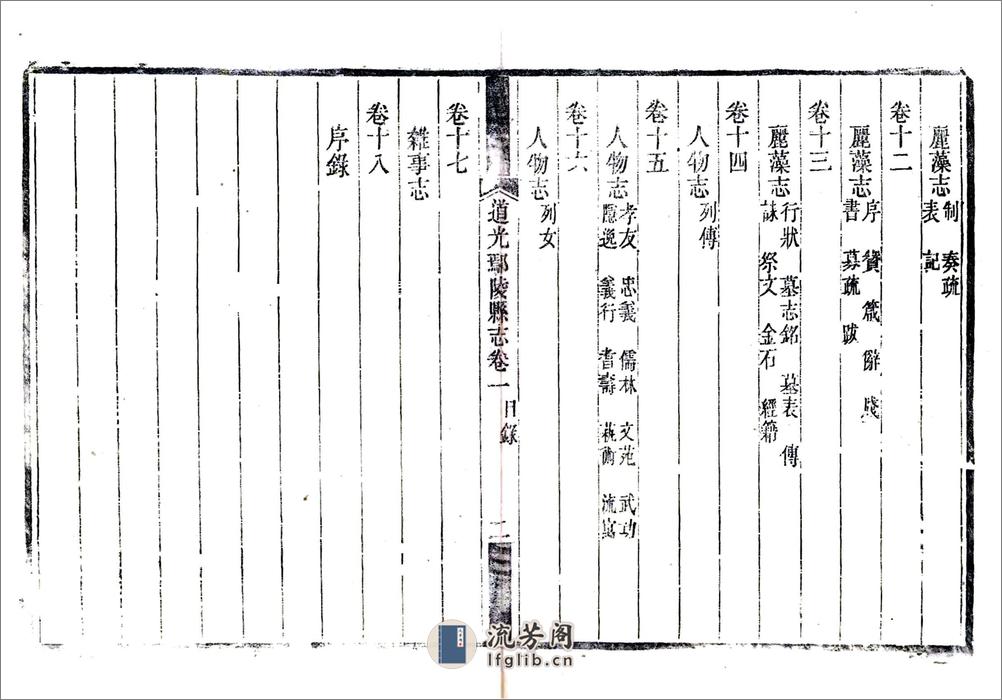 麗藻志 制 奏疏
表 記
卷十二
麗藻志 序 贊 箴 辭 牋
書 募疏 跋
卷十三
麗藻志 行狀 墓志銘 墓表 傳
誄 祭文 金石 經籍
卷十四
人物志 列傳
卷十五
人物志 孝友 忠義 儒林 文苑 武功
隱逸 義行 耆壽 藝術 流寓
卷十六
人物志 列女
道光鄢陵縣志卷一 目錄 二
卷十七
雜事志
卷十八
序錄
流芳阁
lfglib.cn